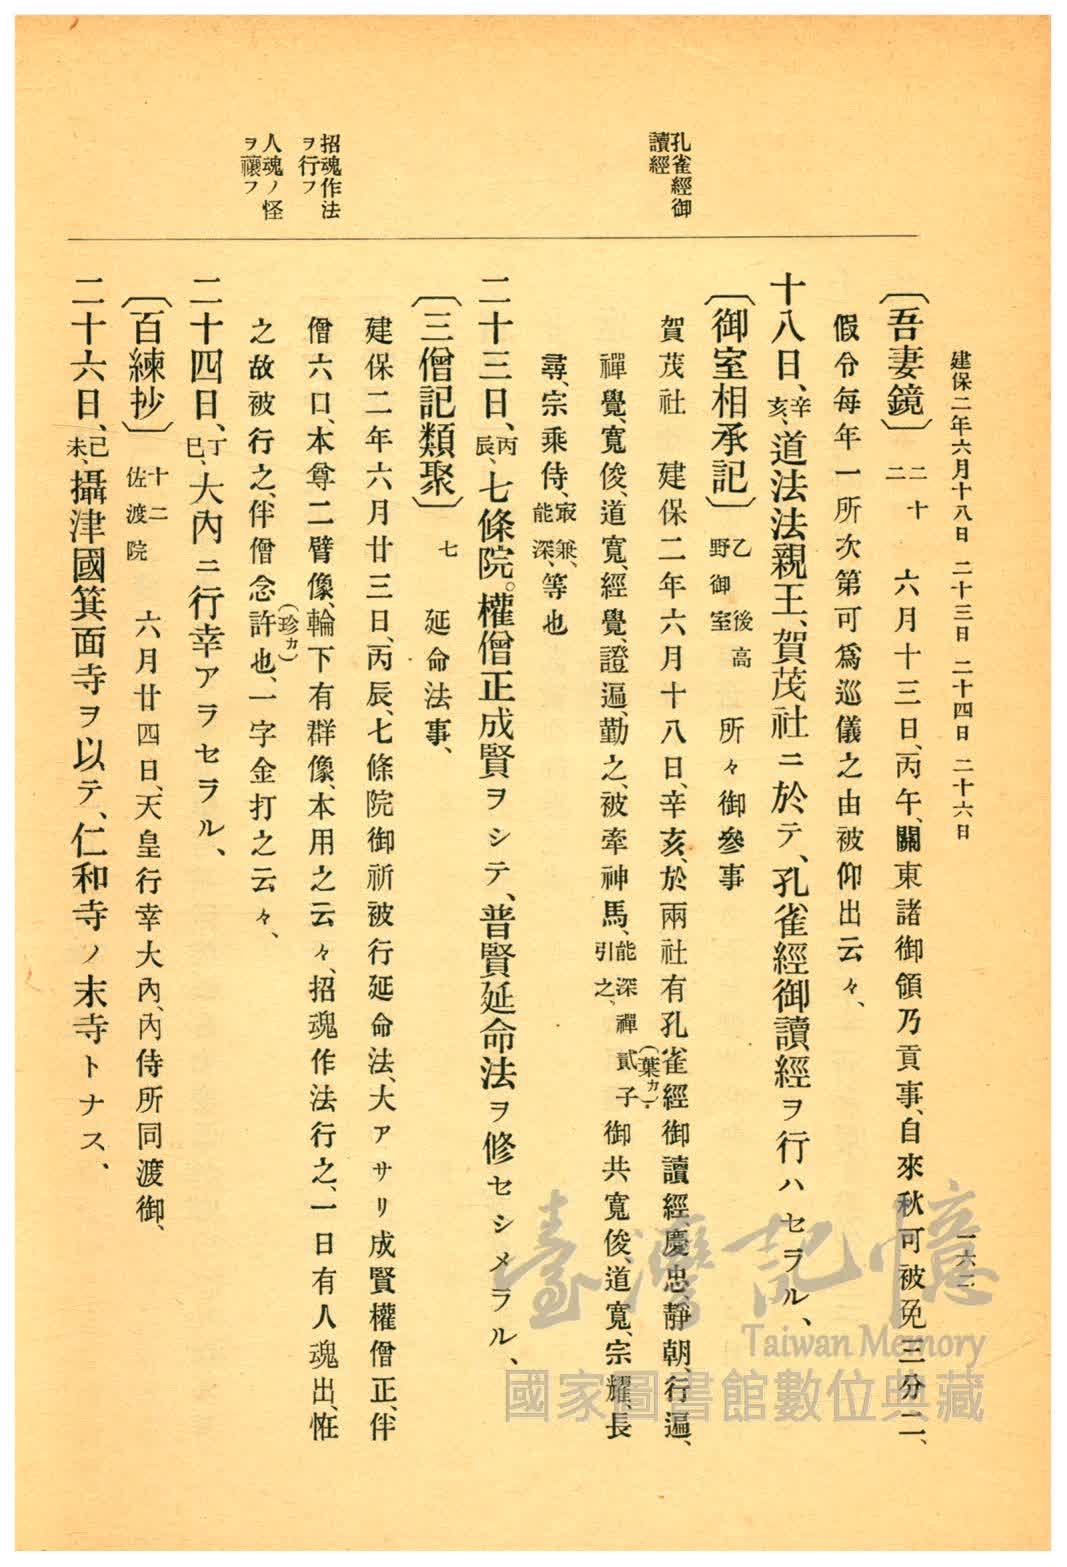 建保二年六月十八日 二十三日 二十四日 二十六日 一六二
孔雀經御
讀經
招魂作法
ヲ行フ
人魂ノ怪
ヲ禳フ
〔吾妻鏡〕 二十二 六月十三日、丙午、關東諸御領乃貢事、自來秋可被免三分二、
假令每年一所次第可爲巡儀之由被仰出云々、
十八日、辛亥、道法法親王、賀茂社ニ於テ、孔雀經御讀經ヲ行ハセラル、
〔御室相承記〕 乙 後高野御室 所々御參事
賀茂社 建保二年六月十八日、辛亥、於兩社有孔雀經御讀經慶忠、靜朝、行遍、
禪覺、寬俊、道寬、經覺、證遍、勤之、被牽神馬、能深禪貳(葉カ)子引之、御共寬俊、道寬、宗耀、長
尋、宗乘侍、㝡兼、能深、等也
二十三日、丙辰、七條院。權僧正成賢ヲシテ、普賢延命法ヲ修セシメラル、
〔三僧記類聚〕 七 延命法事、
建保二年六月廿三日、丙辰、七條院御祈被行延命法、大アサリ成賢權僧正、伴
僧六口、本尊二臂像、輪下有群像、本用之云々、招魂作法行之、一日有人魂出、恠
之故被行之、伴僧念許(珍カ)也、一字金打之云々、
二十四日、丁巳、大內ニ行幸アラセラル、
〔百練抄〕 十二 佐渡院 六月廿四日、天皇行幸大內、內侍所同渡御、
二十六日、己未、攝津國箕面寺ヲ以テ、仁和寺ノ末寺トナス、
臺灣記憶
Taiwan Memory
國家圖書館數位典藏